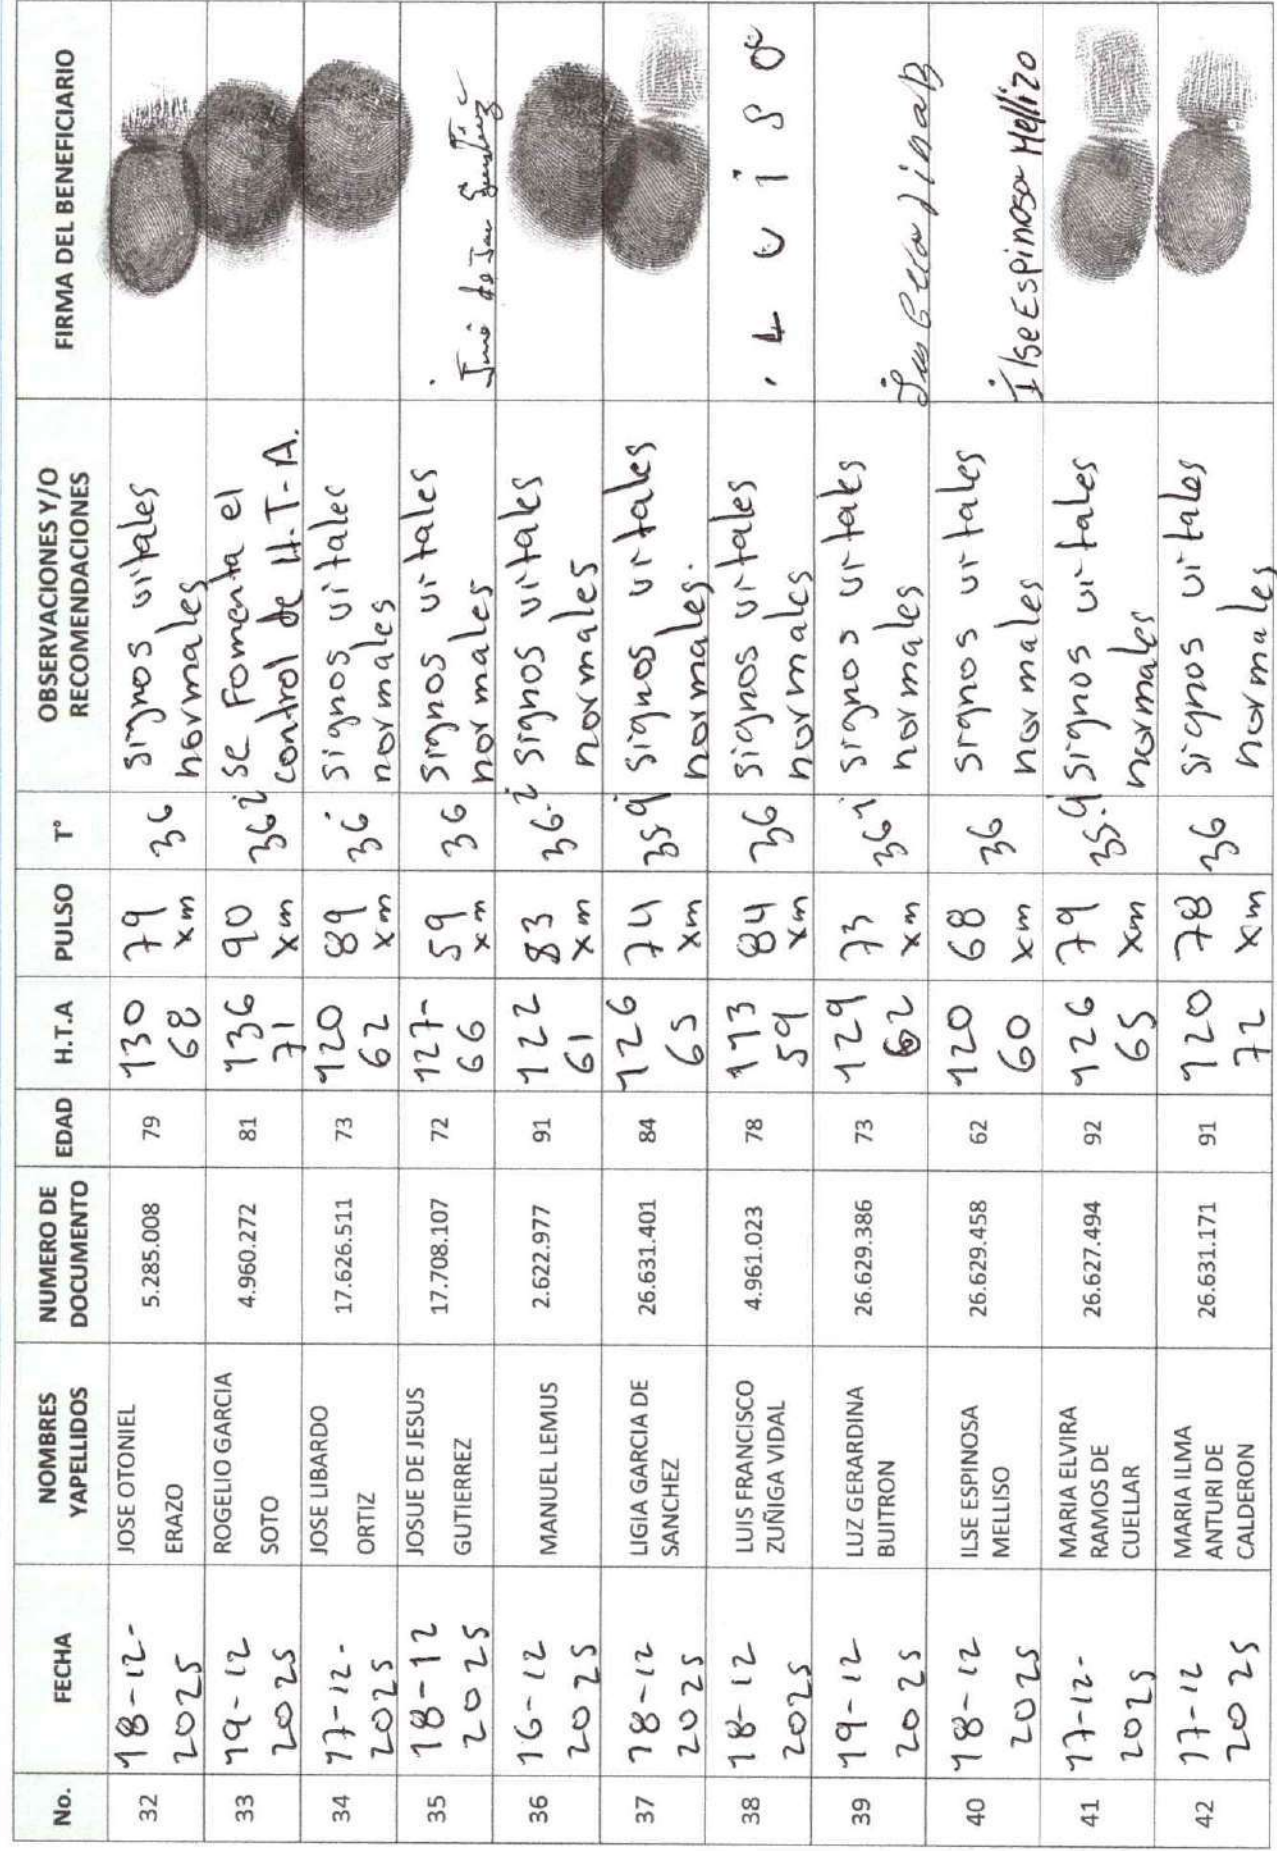 No. FECHA NOMBRES YAPELLIDOS NUMERO DE DOCUMENTO EDAD H.T.A PULSO T° OBSERVACIONES Y/O RECOMENDACIONES FIRMA DEL BENEFICIARIO
32 18-12-2025 JOSE OTONIEL ERAZO 5.285.008 79 130 68 79 xm 36 signos vitales normales
33 19-12 2025 ROGELIO GARCIA SOTO 4.960.272 81 136 71 90 xm 36 se Fomenta el control de H.T-A.
34 17-12-2025 JOSE LIBARDO ORTIZ 17.626.511 73 120 62 89 xm 36 signos vitales normales
35 18-12 2025 JOSUE DE JESUS GUTIERREZ 17.708.107 72 127- 66 59 xm 36 signos vitales normales
36 16-12 2025 MANUEL LEMUS 2.622.977 91 122 61 83 xm 36.2 signos vitales normales
37 18-12 2025 LIGIA GARCIA DE SANCHEZ 26.631.401 84 126 65 74 xm 35.9 signos vitales normales.
38 18-12 2025 LUIS FRANCISCO ZUÑIGA VIDAL 4.961.023 78 113 59 84 xm 36 signos vitales normales L U i S O
39 19-12 2025 LUZ GERARDINA BUITRON 26.629.386 73 129 62 73 xm signos vitales normales
40 18-12 2025 ILSE ESPINOSA MELLISO 26.629.458 62 120 60 68 xm 36 signos vitales normales Ilse Espinosa Mellizo
41 17-12-2025 MARIA ELVIRA RAMOS DE CUELLAR 26.627.494 92 126 65 79 xm 35.9 signos vitales normales
42 17-12 2025 MARIA ILMA ANTURI DE CALDERON 26.631.171 91 120 72 78 xm 36 signos vitales normales